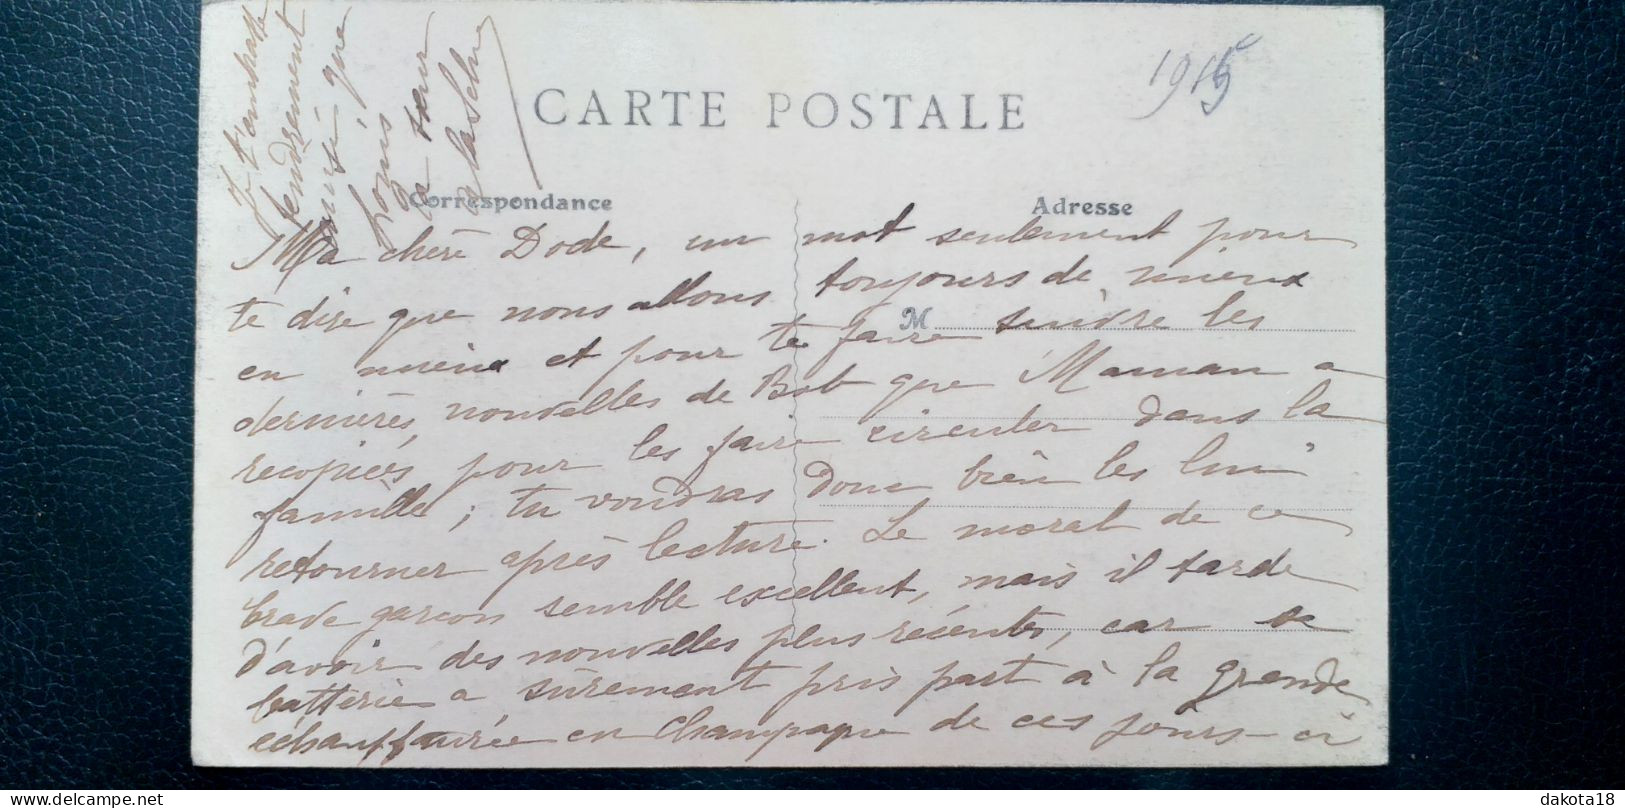 Je t'embrasse
tendrement
ainsi que
Louis
ta sœur
CARTE POSTALE
1915
Correspondance
Adresse
M
Ma chère Dode, un mot seulement pour
te dire que nous allons toujours de mieux
en mieux et pour te faire suivre les
dernières nouvelles de Bob que Maman a
recopiées pour les faire circuler dans la
famille ; tu voudras donc bien les lui
retourner après lecture. Le moral de ce
brave garçon semble excellent, mais il tarde
d'avoir des nouvelles plus récentes, car sa
batterie a sûrement pris part à la grande
échauffourée en Champagne de ces jours-ci
dakota18